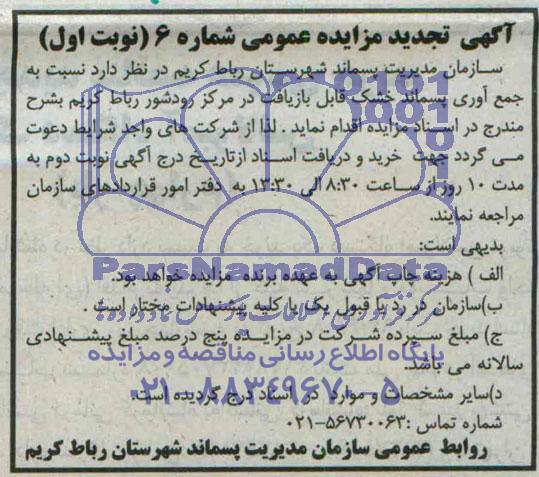 آگهی تجدید مزایده عمومی شماره ۶ (نوبت اول)
سازمان مدیریت پسماند شهرستان رباط کریم در نظر دارد نسبت به
جمع آوری پسماند خشک قابل بازیافت در مرکز رودشور رباط کریم بشرح
مندرج در اسناد مزایده اقدام نماید . لذا از شرکت های واجد شرایط دعوت
می گردد جهت خرید و دریافت اسناد ازتاریخ درج آگهی نوبت دوم به
مدت ۱۰ روز از ساعت ۸:۳۰ الی ۱۳:۳۰ به دفتر امور قراردادهای سازمان
مراجعه نمایند.
بدیهی است:
ParsNamadData
الف ) هزینه چاپ آگهی به عهده برنده مزایده خواهد بود.
ب)سازمان در رد یا قبول یک یا کلیه پیشنهادات مختار است .
ج) مبلغ سپرده شرکت در مزایده پنج درصد مبلغ پیشنهادی
پایگاه اطلاع رسانی مناقصه و مزایده
سالانه می باشد.
۰۲۱-۸۸۳۴۹۶۷۰-۵
د)سایر مشخصات و موارد در اسناد درج گردیده است.
شماره تماس :۵۶۷۳۰۰۶۳-۰۲۱
روابط عمومی سازمان مدیریت پسماند شهرستان رباط کریم